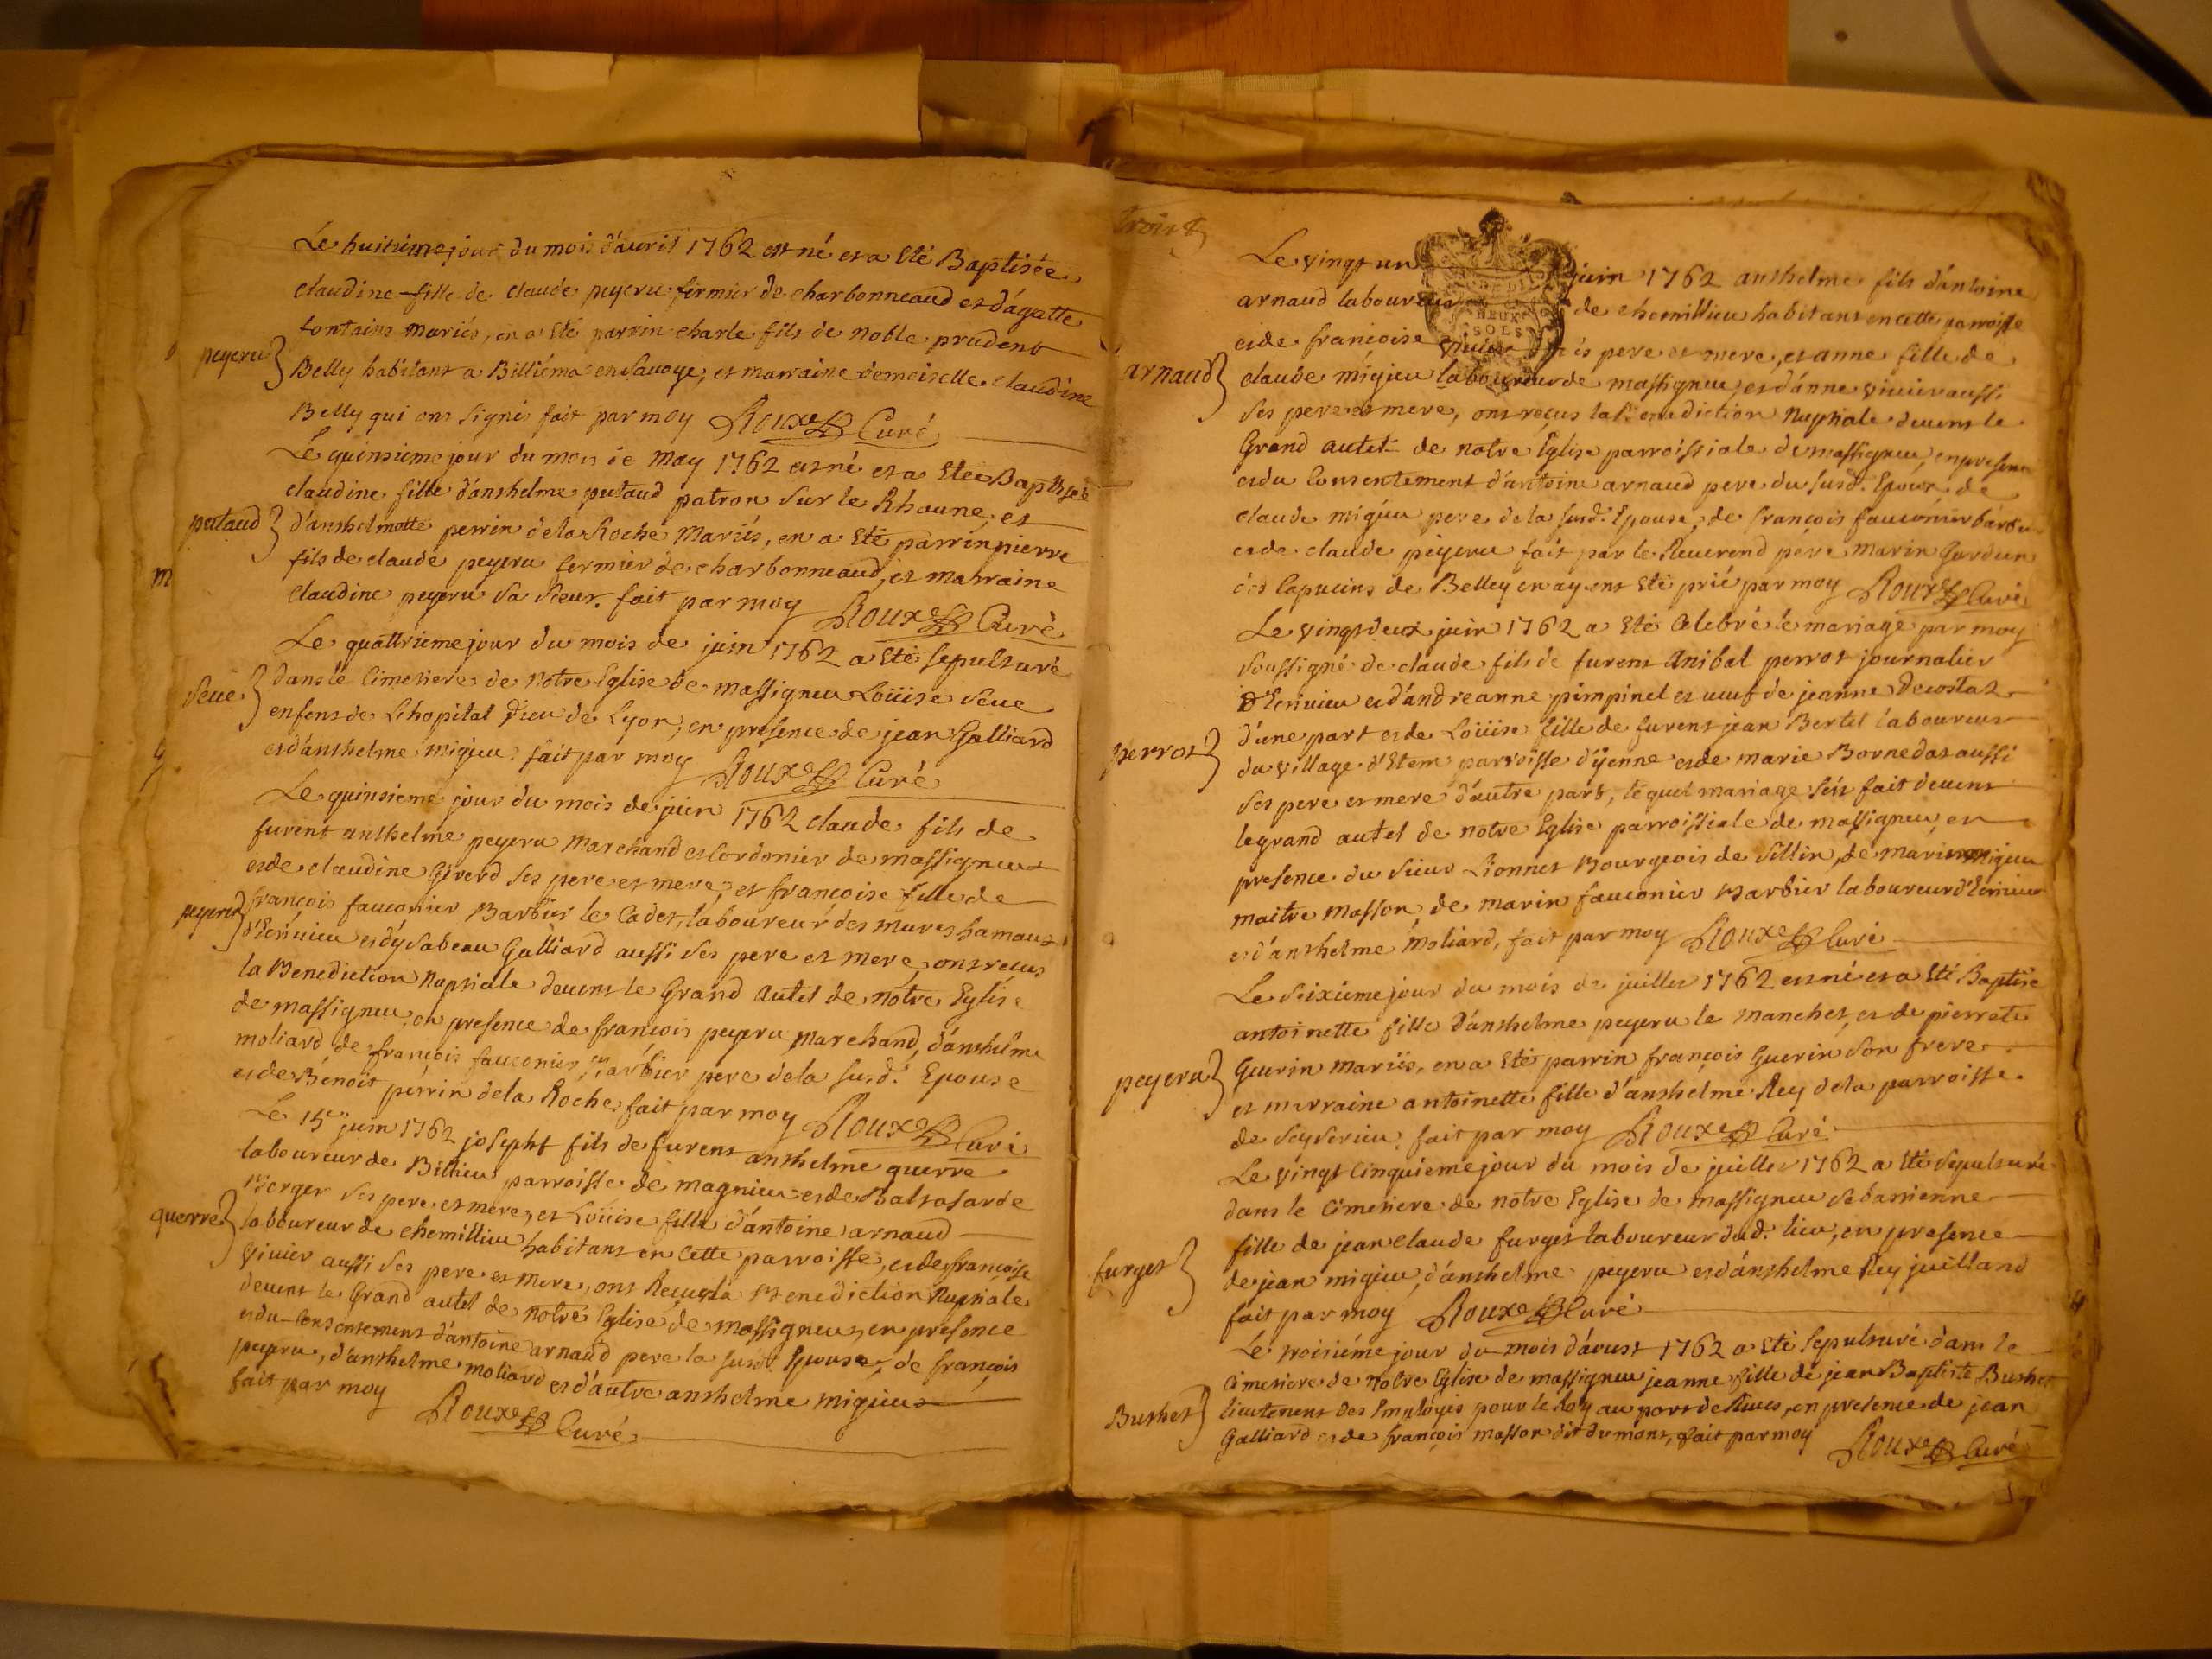 Le huitième jour du mois d'avril 1762 est né et a Eté Baptisée
claudine fille de claude peyeru fermier de charbonneaud et d'agatte
fontains mariés, en a Eté parrin charle fils de noble prudent
peyeru} Belly habitant a Billiéma en Savoye, et marraine demoiselle claudine
Belly qui ont signés fait par moy Roux Curé
Le quinsieme jour du mois de may 1762 est né et a Etée Baptisée
claudine fille d'anthelme putaud patron sur le Rhoune, et
putaud} d'anthelmotte perrin de la Roche Mariés, en a Eté parrin pierre
fils de claude peyeru fermier de charbonneaud, et marraine
m
claudine peyeru sa soeur. fait par moy Roux Curé
Le quattrieme jour du mois de juin 1762 a Eté sepulturé
seue} dans le Cimetiere de notre Eglise de massigneu Loüise seue
enfens de L'hopital Dieu de Lyon, en presence de jean Galliard
et d'anthelme migieu. fait par moy Roux Curé
Le quinsieme jour du mois de juin 1762 claude fils de
furent anthelme peyeru marchand et Cordonier de massigneu
et de claudine Girerd ses pere et mere, et francoise fille de
peyeru} françois fauconier Barbier le Cadet, laboureur des mures hamaux
d'Ecrivieu et d'ysabeau Galliard aussi ses pere et mere, ont reçus
la Benediction Nuptiale devent le Grand autel de notre Eglise
de massigneu, en presence de françois peyeru marchand, d'anthelme
moliard de françois fauconier Barbier pere de la susd. Epouse
et de Benoit perrin de la Roche, fait par moy Roux Curé
Le 15e juin 1762 josepht fils de furent anthelme guerre
laboureur de Billieu parroisse de magnieu et de Baltasarde
Berger ses pere et mere, et Loüise fille d'antoine arnaud
guerre} laboureur de chemillieu habitant en cette parroisse, et de francoise
vivier aussi ses pere et mere, ont Reçus la Benediction Nuptiale
devent le Grand autel de notre Eglise de massigneu, en presence
et du Consentement d'antoine arnaud pere la susd. Epouse, de françois
peyeru, d'anthelme moliard et d'autre anthelme migieu
fait par moy Roux Curé
trois
Le vingt un juin 1762 anthelme fils d'antoine
arnaud laboureur de chemillieu habitant en cette parroisse
DEUX SOLS
et de francoise vivier pere et mere, et anne fille de
arnaud} claude migieu laboureur de massigneu, et d'anne vivier aussi
ses pere et mere, ont reçus la Benediction Nuptiale devent le
Grand autel de notre Eglise parroissiale de massigneu, en presence
et du Consentement d'antoine arnaud pere du susd. Epoux, de
claude migieu pere de la susd. Epouse, de françois fauconier barbier
et de claude peyeru fait par le Reverend pere marin Gardien
des Capucins de Belley en ayent Eté prié par moy Roux Curé
Le vingtdeux juin 1762 a Eté Celebré le mariage par moy
soussigné de claude fils de furent Anibal perrot journalier
d'Ecrivieu et d'andreanne pimpinel et veuf de jeanne Decostaz
perrot} d'une part et de Loüise fille de furent jean Bertet laboureur
du village d'Etem parroisse d'yenne et de marie Bornedaz aussi
ses pere et mere d'autre part, lequel mariage s'est fait devent
le grand autel de notre Eglise parroissiale de massigneu, en
presence du sieur Lionnet Bourgeois de sillin, de marin migieu
maitre masson, de marin fauconier Barbier laboureur d'Ecrivieu
et d'anthelme moliard, fait par moy Roux Curé
Le seixieme jour du mois de juillet 1762 est né et a Eté Baptisé
antoinette fille d'anthelme peyeru le manchet, et de pierrete
peyeru} Guerin mariés, en a Eté parrin françois Guerin son frere
et marraine antoinette fille d'anthelme Rey de la parroisse
de seyserieu fait par moy Roux Curé
Le vingt Cinquieme jour du mois de juillet 1762 a Eté sepulturé
dans le Cimetiere de notre Eglise de massigneu sebastienne
furget} fille de jean claude furget laboureur dud. lieu, en presence
de jean migieu, d'anthelme peyeru et d'anthelme Rey juilland
fait par moy Roux Curé
Le troisiéme jour du mois d'aoust 1762 a Eté sepulturé dans le
Cimetiere de notre Eglise de massigneu jeanne fille de jean Baptiste Buthet
Buthet} lieutenent des Employés pour le Roy au port de Rives, en presence de jean
Galliard et de françois masson dit dumont, fait par moy Roux Curé